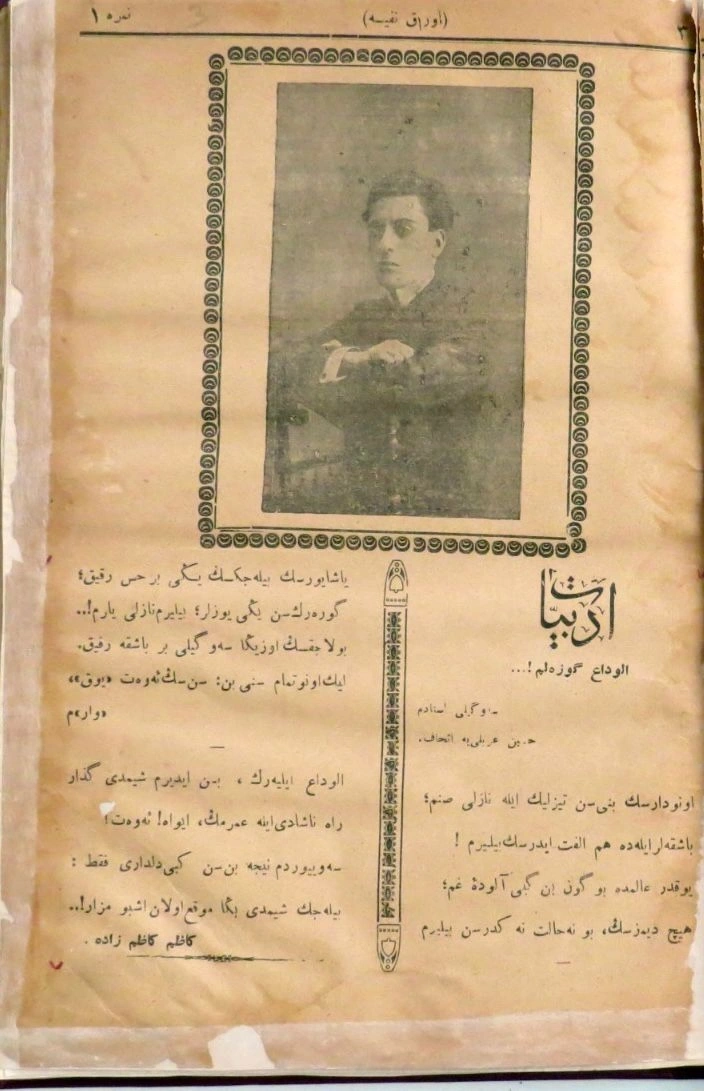 ٣
(اوراق نفیسه)
نمره ١
ادبیات
الوداع گوزه‌لم !...
سوگیلی استادم
حسین عربلی‌یه اتحاف.
اونودارسك بنی سن تیزلیك ایله نازلی صنم؛
باشقه‌لرایله‌ده هم الفت ایدرسك بیلیرم !
یوقدر عالمده بو گون بن گبی آلودهٔ غم؛
هیچ دیمزسك، بو نه‌حالت نه كدرسن بیلیرم
یاشایورسك بیله‌جكسك یڭی بر حس رقیق؛
گوره‌رك‌سن یڭی یوزلر؛ بیلیرم نازلی یارم!..
بولاجقسڭ اوزیڭا سه‌وگیلی بر باشقه رفیق.
لیك اونوتمام سنی بن: سن‌سڭ ئه‌وه‌ت «یوق»،
«وار»م
الوداع ایلیه‌رك ، بن ایدیرم شیمدی گذار
راه ناشادی ایله عمرمڭ، ایواه! ئه‌وه‌ت!
سه‌وییوردم نیجه بن‌سن كبی دلداری فقط :
بیله‌جك شیمدی بڭا موقع‌اولان اشبو مزار!..
كاظم كاظم زاده .